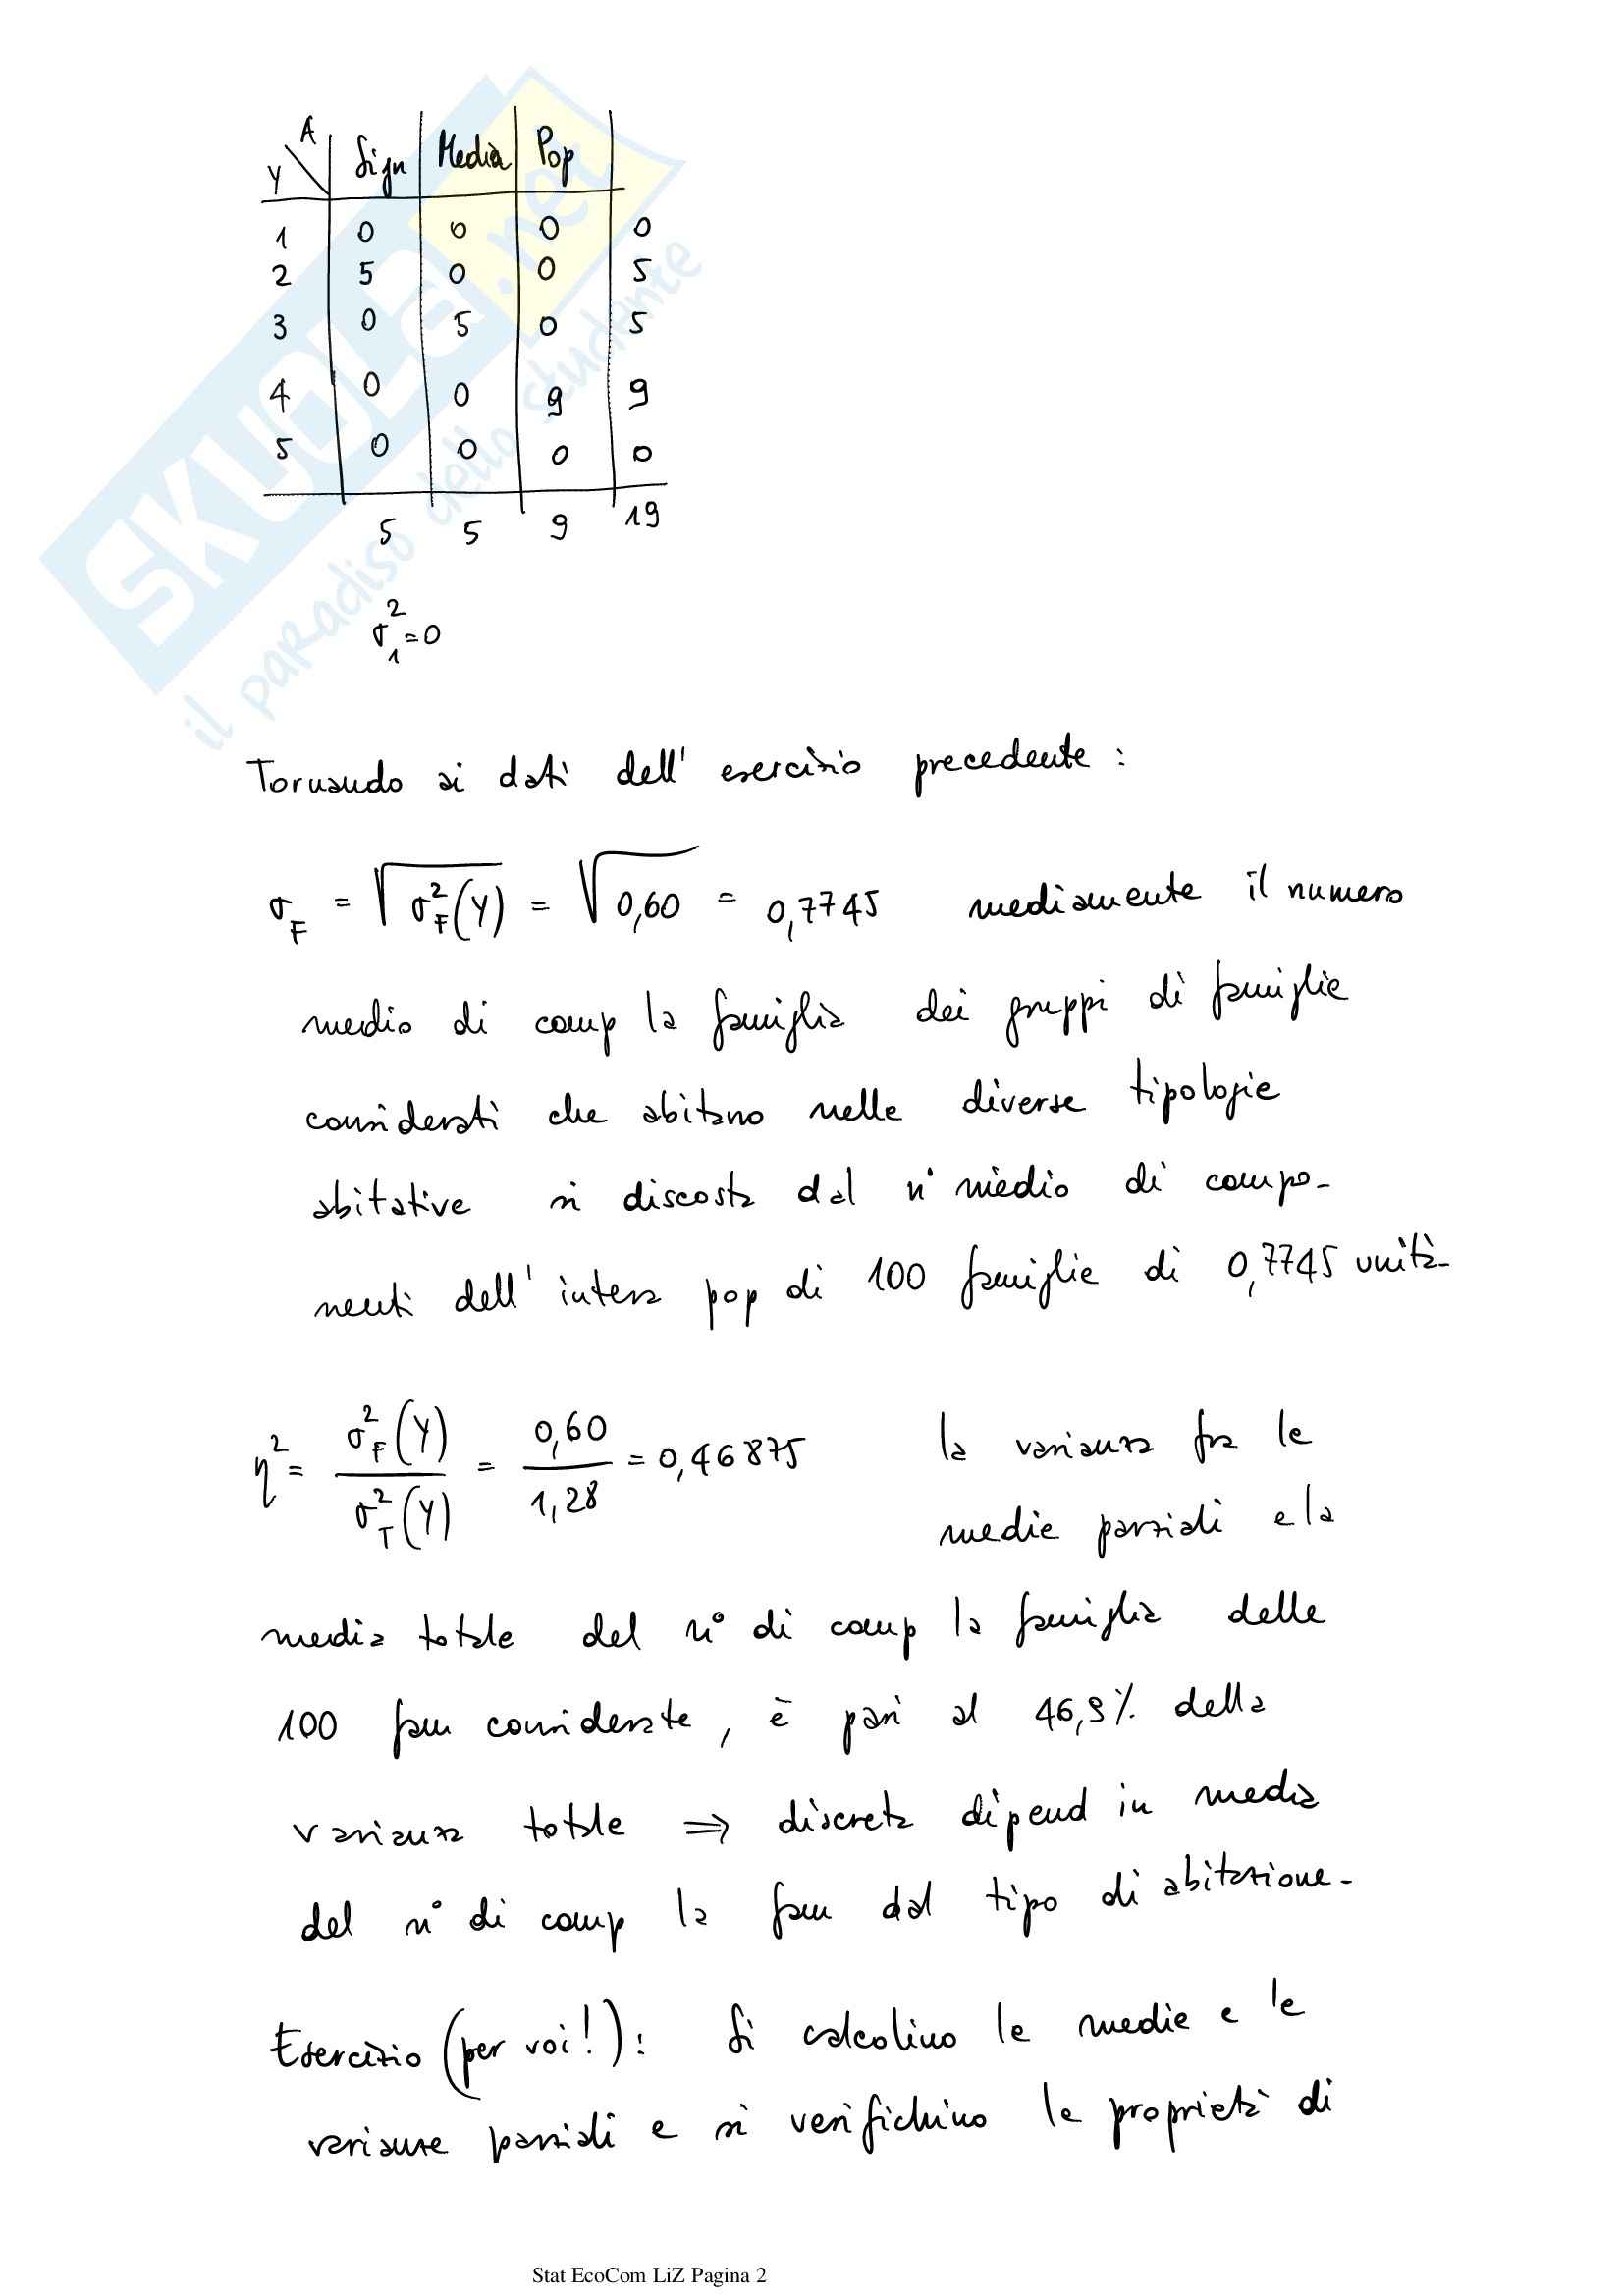 Y \ A Sign Media Pop
1 0 0 0 0
2 5 0 0 5
3 0 5 0 5
4 0 0 9 9
5 0 0 0 0
5 5 9 19
σ²₁=0
Tornando ai dati dell' esercizio precedente :
σ_F = √σ²_F(Y) = √0,60 = 0,7745 mediamente il numero
medio di comp la famiglia dei gruppi di famiglie
considerati che abitano nelle diverse tipologie
abitative si discosta dal n° medio di compo-
nenti dell' intera pop di 100 famiglie di 0,7745 unità-
η² = σ²_F(Y) / σ²_T(Y) = 0,60 / 1,28 = 0,46875 la varianza fra le
medie parziali e la
media totale del n° di comp la famiglia delle
100 fam considerate, è pari al 46,9% della
varianza totale ⇒ discreta dipend in media
del n° di comp la fam dal tipo di abitazione-
Esercizio (per voi!): Si calcolino le medie e le
varianze parziali e si verifichino le proprietà di
Stat EcoCom LiZ Pagina 2
SKUOLa.net
il paradiso dello studente